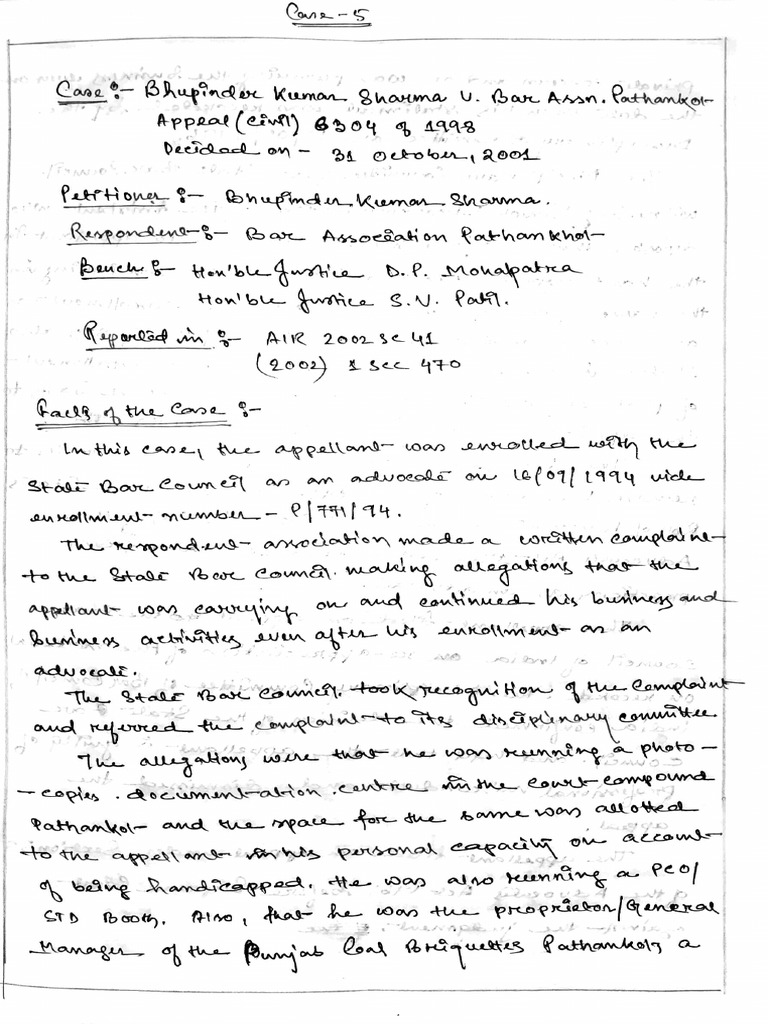 Case - 5
Case :- Bhupinder Kumar Sharma V. Bar Assn. Pathankot
Appeal (Civil) 6304 of 1998
Decided on - 31 October, 2001
Petitioner :- Bhupinder Kumar Sharma.
Respondent :- Bar Association Pathankhot
Bench :- Hon'ble Justice D.P. Mohapatra
Hon'ble Justice S.V. Patil.
Reported in :- AIR 2002 SC 41
(2002) 1 SCC 470
Facts of the Case :-
In this case, the appellant was enrolled with the
State Bar Council as an advocate on 16/09/1994 vide
enrollment number - P/771/94.
The respondent association made a written complaint
to the State Bar Council making allegations that the
appellant was carrying on and continued his business and
business activities even after his enrollment as an
advocate.
The State Bar Council took recognition of the Complaint
and referred the complaint to its disciplinary committee
The allegations were that he was running a photo -
- copies. document-ation. centre in the court compound
Pathankot and the space for the same was allotted
to the appellant in his personal capacity on account
of being handicapped. He was also running a PCO/
STD Booth. Also, that he was the proprietor/General
Manager of the Punjab Coal Briquettes Pathankot, a